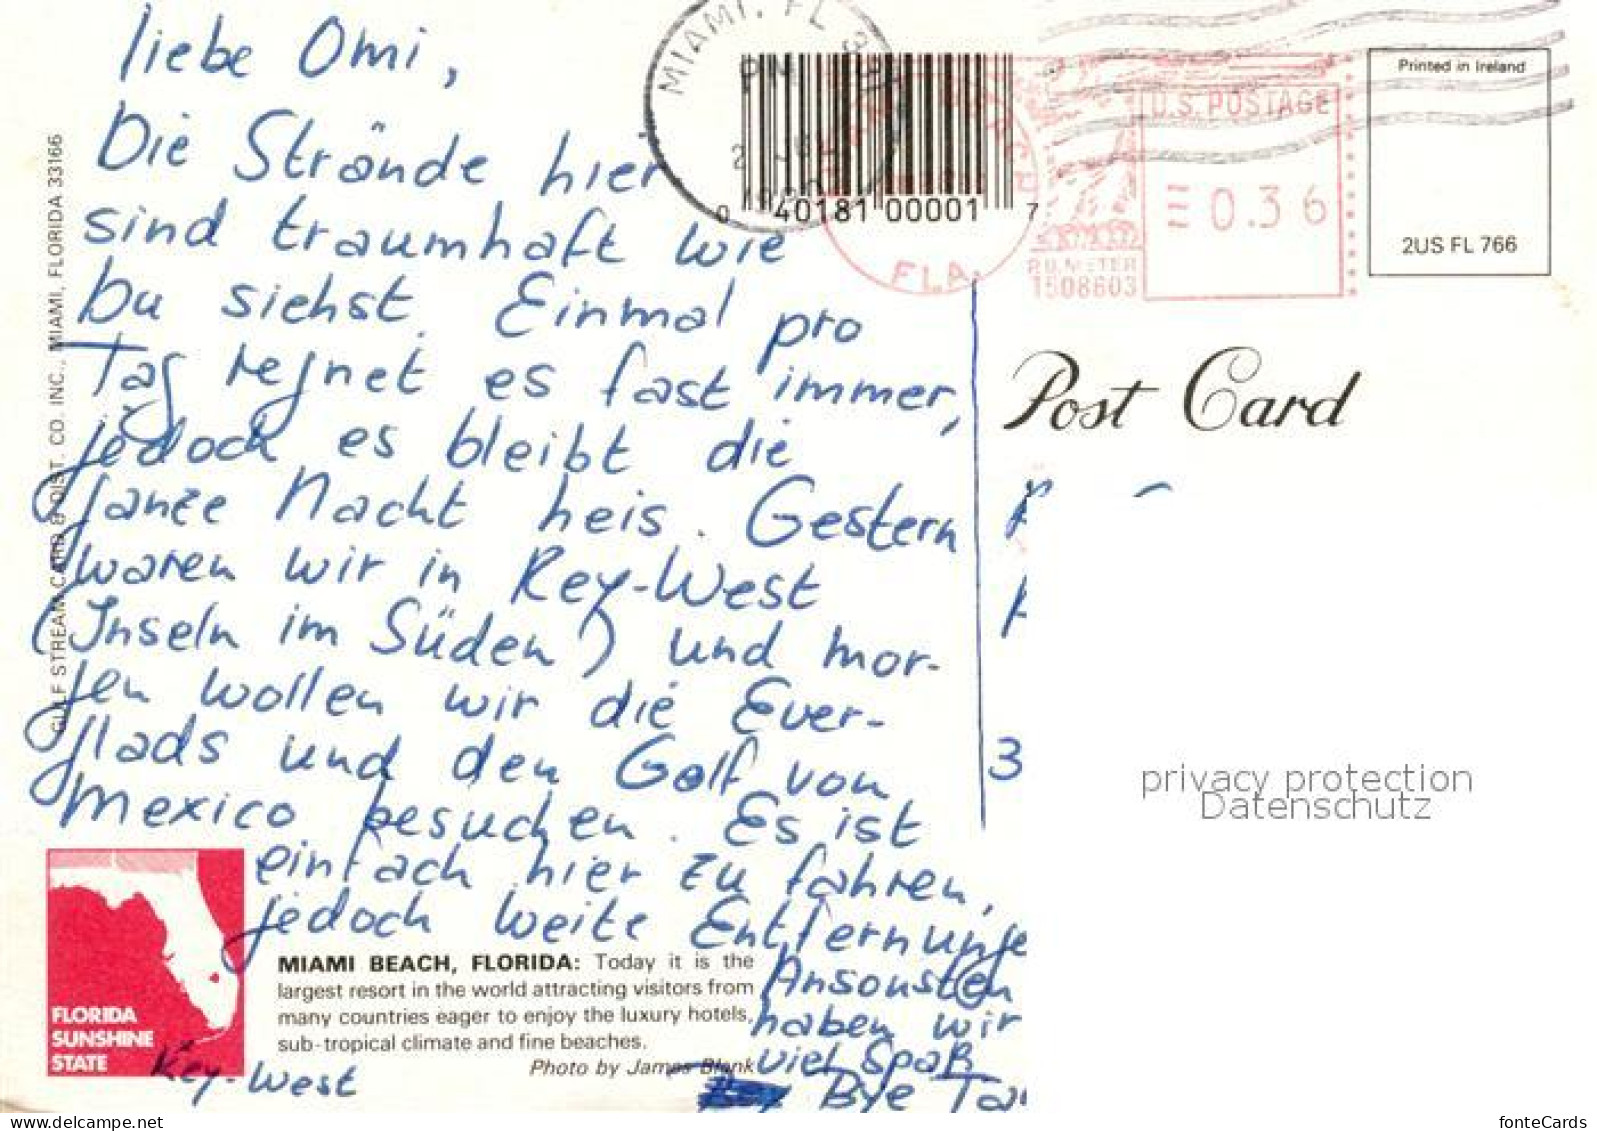 liebe Omi,
Die Strände hier
sind traumhaft wie
Du siehst. Einmal pro
Tag regnet es fast immer,
jedoch es bleibt die
ganze Nacht heis. Gestern
waren wir in Key-West
(Inseln im Süden) und mor-
gen wollen wir die Ever-
glads und den Golf von
Mexico besuchen. Es ist
einfach hier zu fahren,
jedoch weite Entfernunge
Ansonsten
haben wir
viel Spaß
Bye
Key-West
GULF STREAM CARD & DIST. CO. INC., MIAMI, FLORIDA 33166
FLORIDA
SUNSHINE
STATE
MIAMI BEACH, FLORIDA: Today it is the
largest resort in the world attracting visitors from
many countries eager to enjoy the luxury hotels,
sub-tropical climate and fine beaches.
Photo by James Blank
MIAMI, FL
PM
0 40181 00001 7
FLA.
U.S. POSTAGE
0.36
P.B. METER
1508603
Printed in Ireland
2US FL 766
Post Card
3
privacy protection
Datenschutz
https://www.delcampe.net
fonteCards